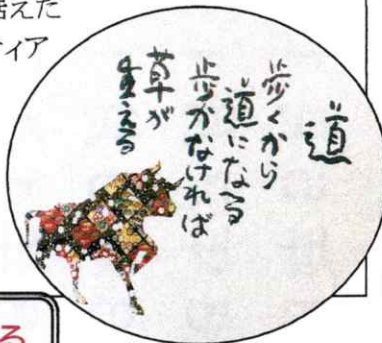 据えた
ィア
道
歩くから
道になる
歩かなければ
草が
生える
る